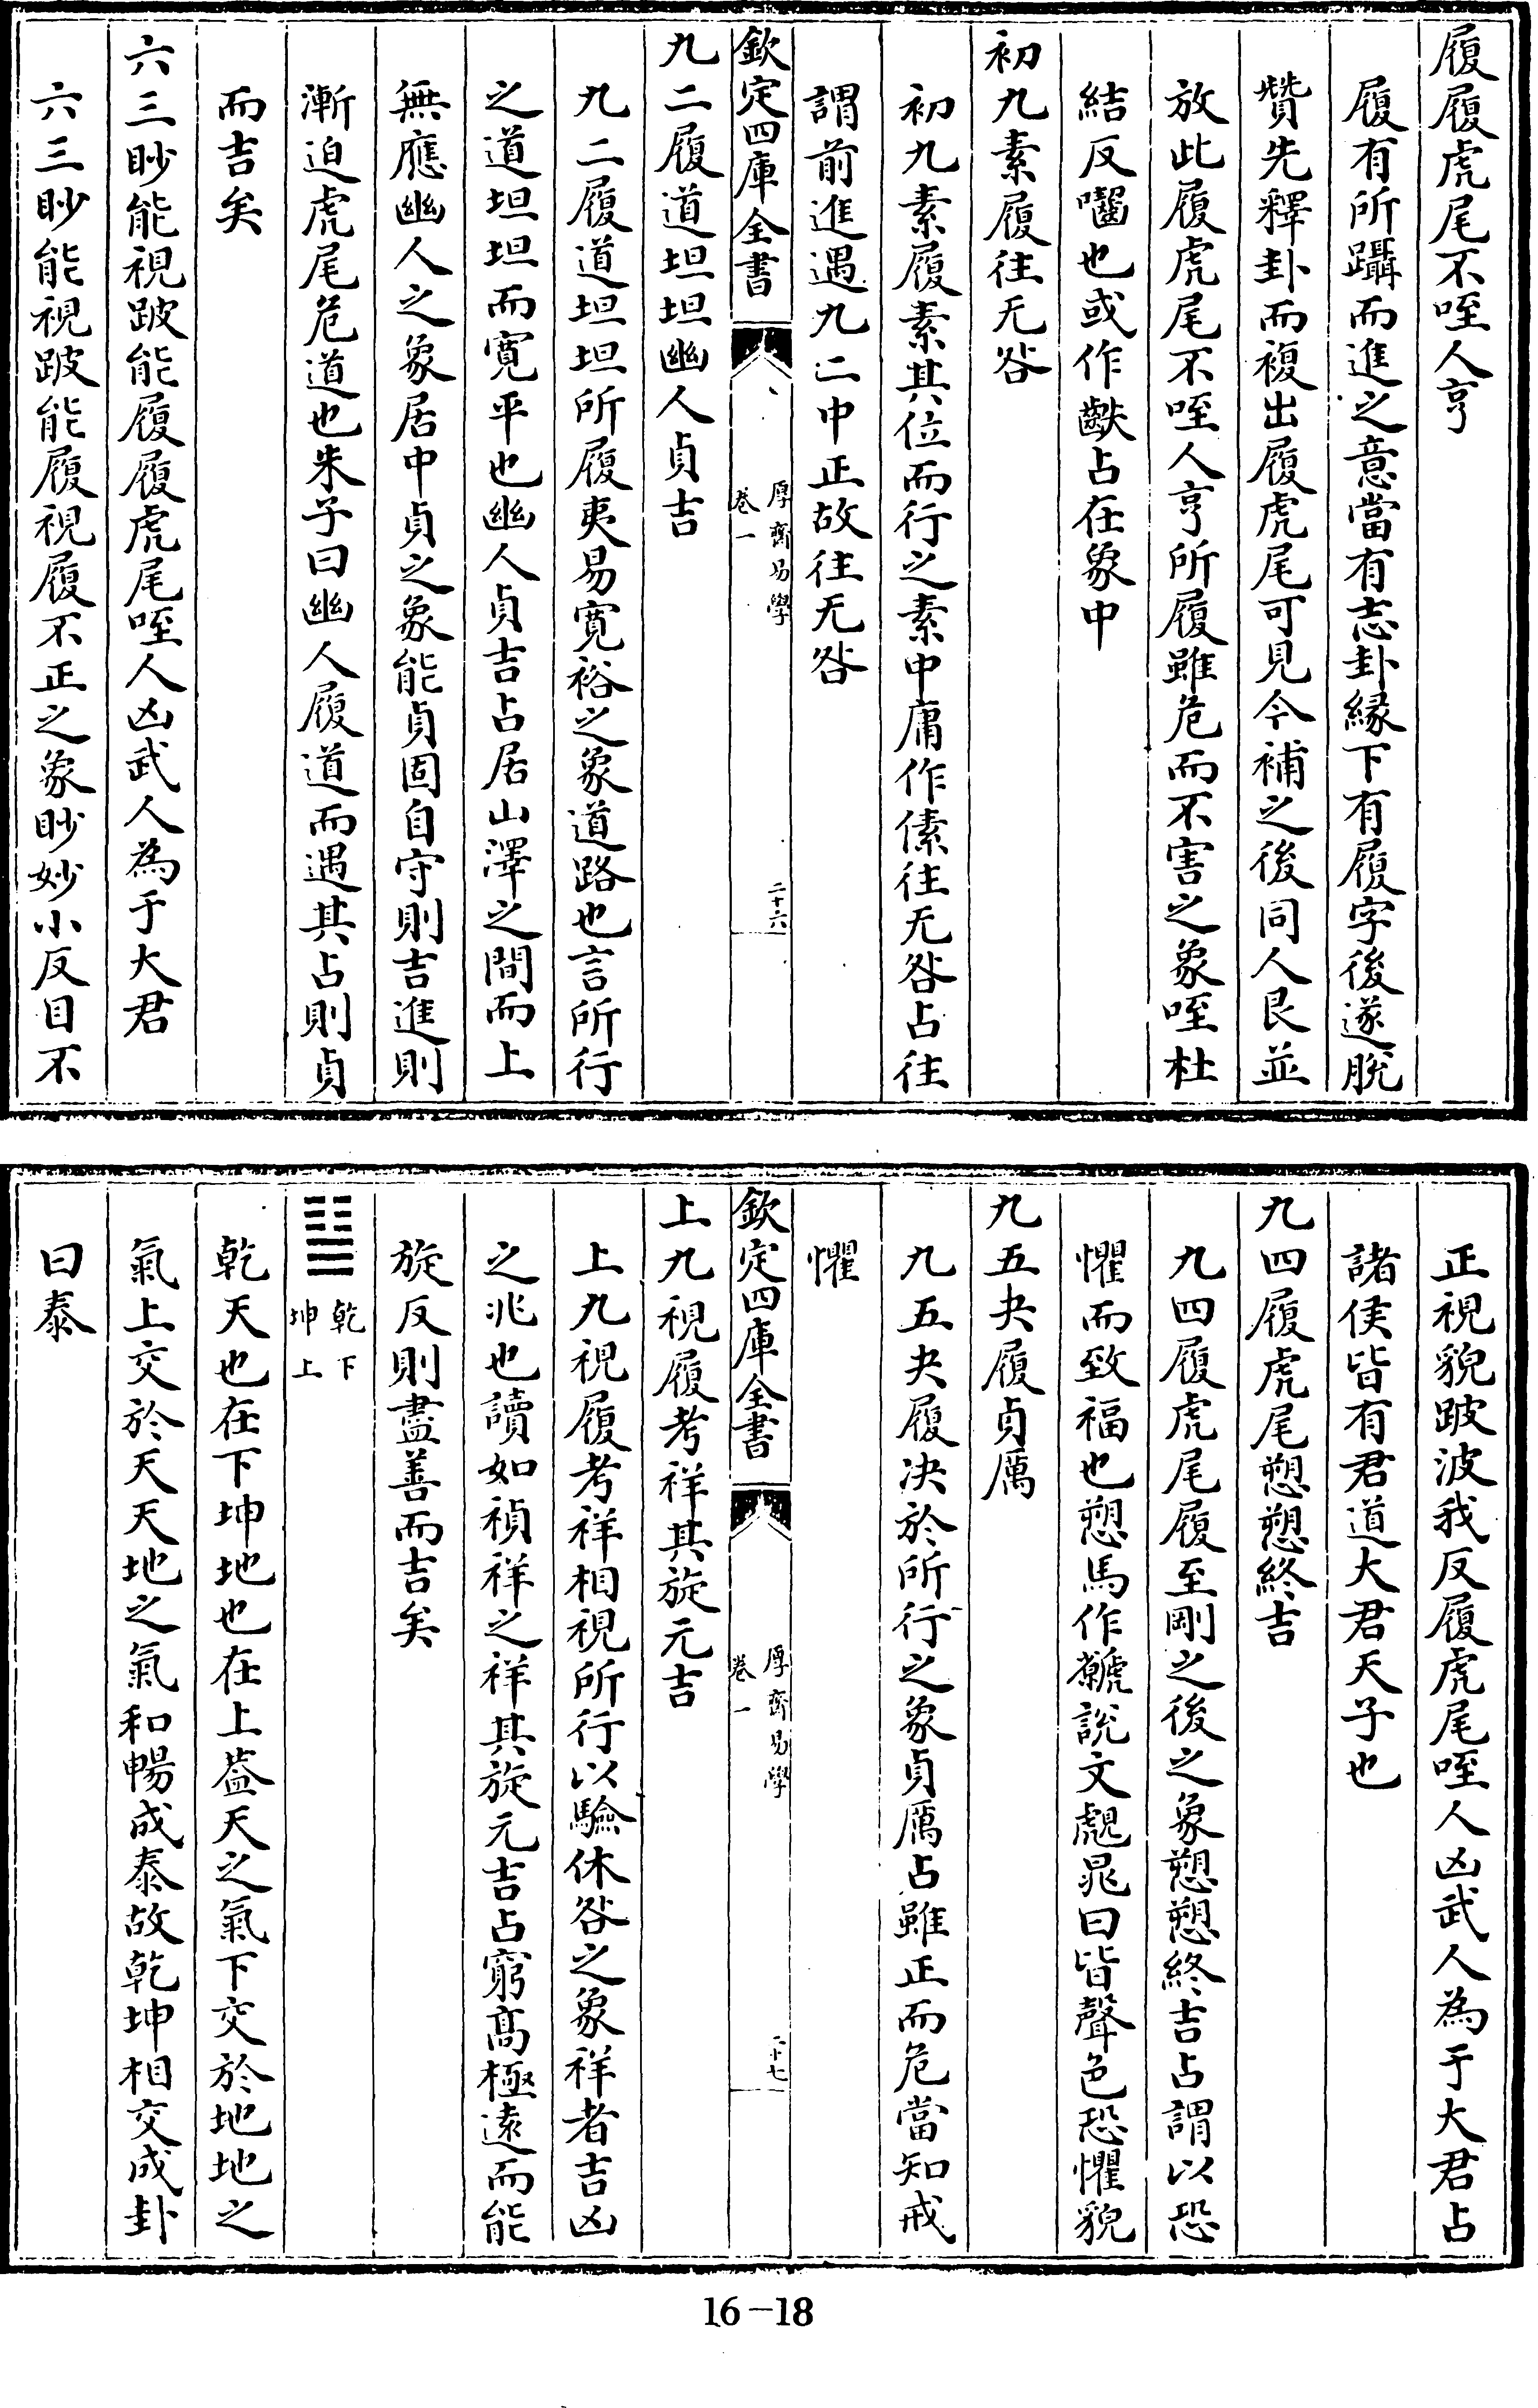 履履虎尾不咥人亨
履有所躡而進之意當有志卦縁下有履字後遂脫
贊先釋卦而複出履虎尾可見今補之後同人艮並
放此履虎尾不咥人亨所履雖危而不害之象咥杜
結反囓也或作齩占在象中
初九素履往无咎
初九素履素其位而行之素中庸作傃往无咎占往
謂前進遇九二中正故往无咎
欽定四庫全書
厚齋易學
卷一
二十六
九二履道坦坦幽人貞吉
九二履道坦坦所履夷易寛裕之象道路也言所行
之道坦坦而寛平也幽人貞吉占居山澤之間而上
無應幽人之象居中貞之象能貞固自守則吉進則
漸迫虎尾危道也朱子曰幽人履道而遇其占則貞
而吉矣
六三眇能視跛能履履虎尾咥人凶武人為于大君
六三眇能視跛能履視履不正之象眇妙小反目不
正視貌跛波我反履虎尾咥人凶武人為于大君占
諸侯皆有君道大君天子也
九四履虎尾愬愬終吉
九四履虎尾履至剛之後之象愬愬終吉占謂以恐
懼而致福也愬馬作虩說文覤晁曰皆聲色恐懼貌
九五夬履貞厲
九五夬履决於所行之象貞厲占雖正而危當知戒
懼
欽定四庫全書
厚齋易學
卷一
二十七
上九視履考祥其旋元吉
上九視履考祥相視所行以驗休咎之象祥者吉凶
之兆也讀如禎祥之祥其旋元吉占窮髙極遠而能
旋反則盡善而吉矣
䷊乾下坤上
乾天也在下坤地也在上葢天之氣下交於地地之
氣上交於天天地之氣和暢成泰故乾坤相交成卦
曰泰
16-18